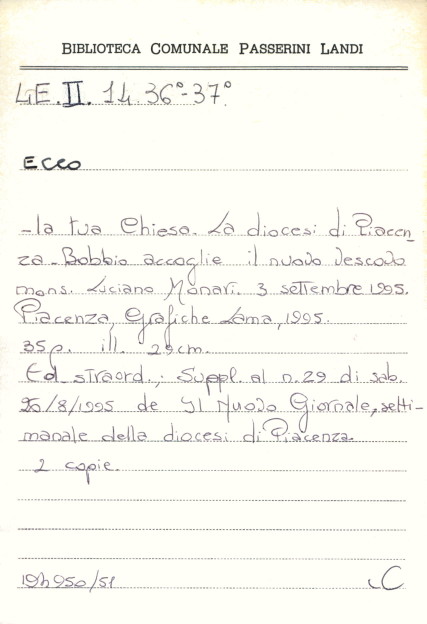 BIBLIOTECA COMUNALE PASSERINI LANDI
4E. II. 14. 36°-37°
ECCO
- la tua Chiesa. La diocesi di Piacen_
za - Bobbio accoglie il nuovo vescovo
mons. Luciano Monari. 3 settembre 1995.
Piacenza, Grafiche Lama, 1995.
35p. ill. 29cm.
Ed. straord.; Suppl. al n. 29 di sab.
26/8/1995 de Il Nuovo Giornale, setti-
manale della diocesi di Piacenza.
2 copie.
194950/51 C